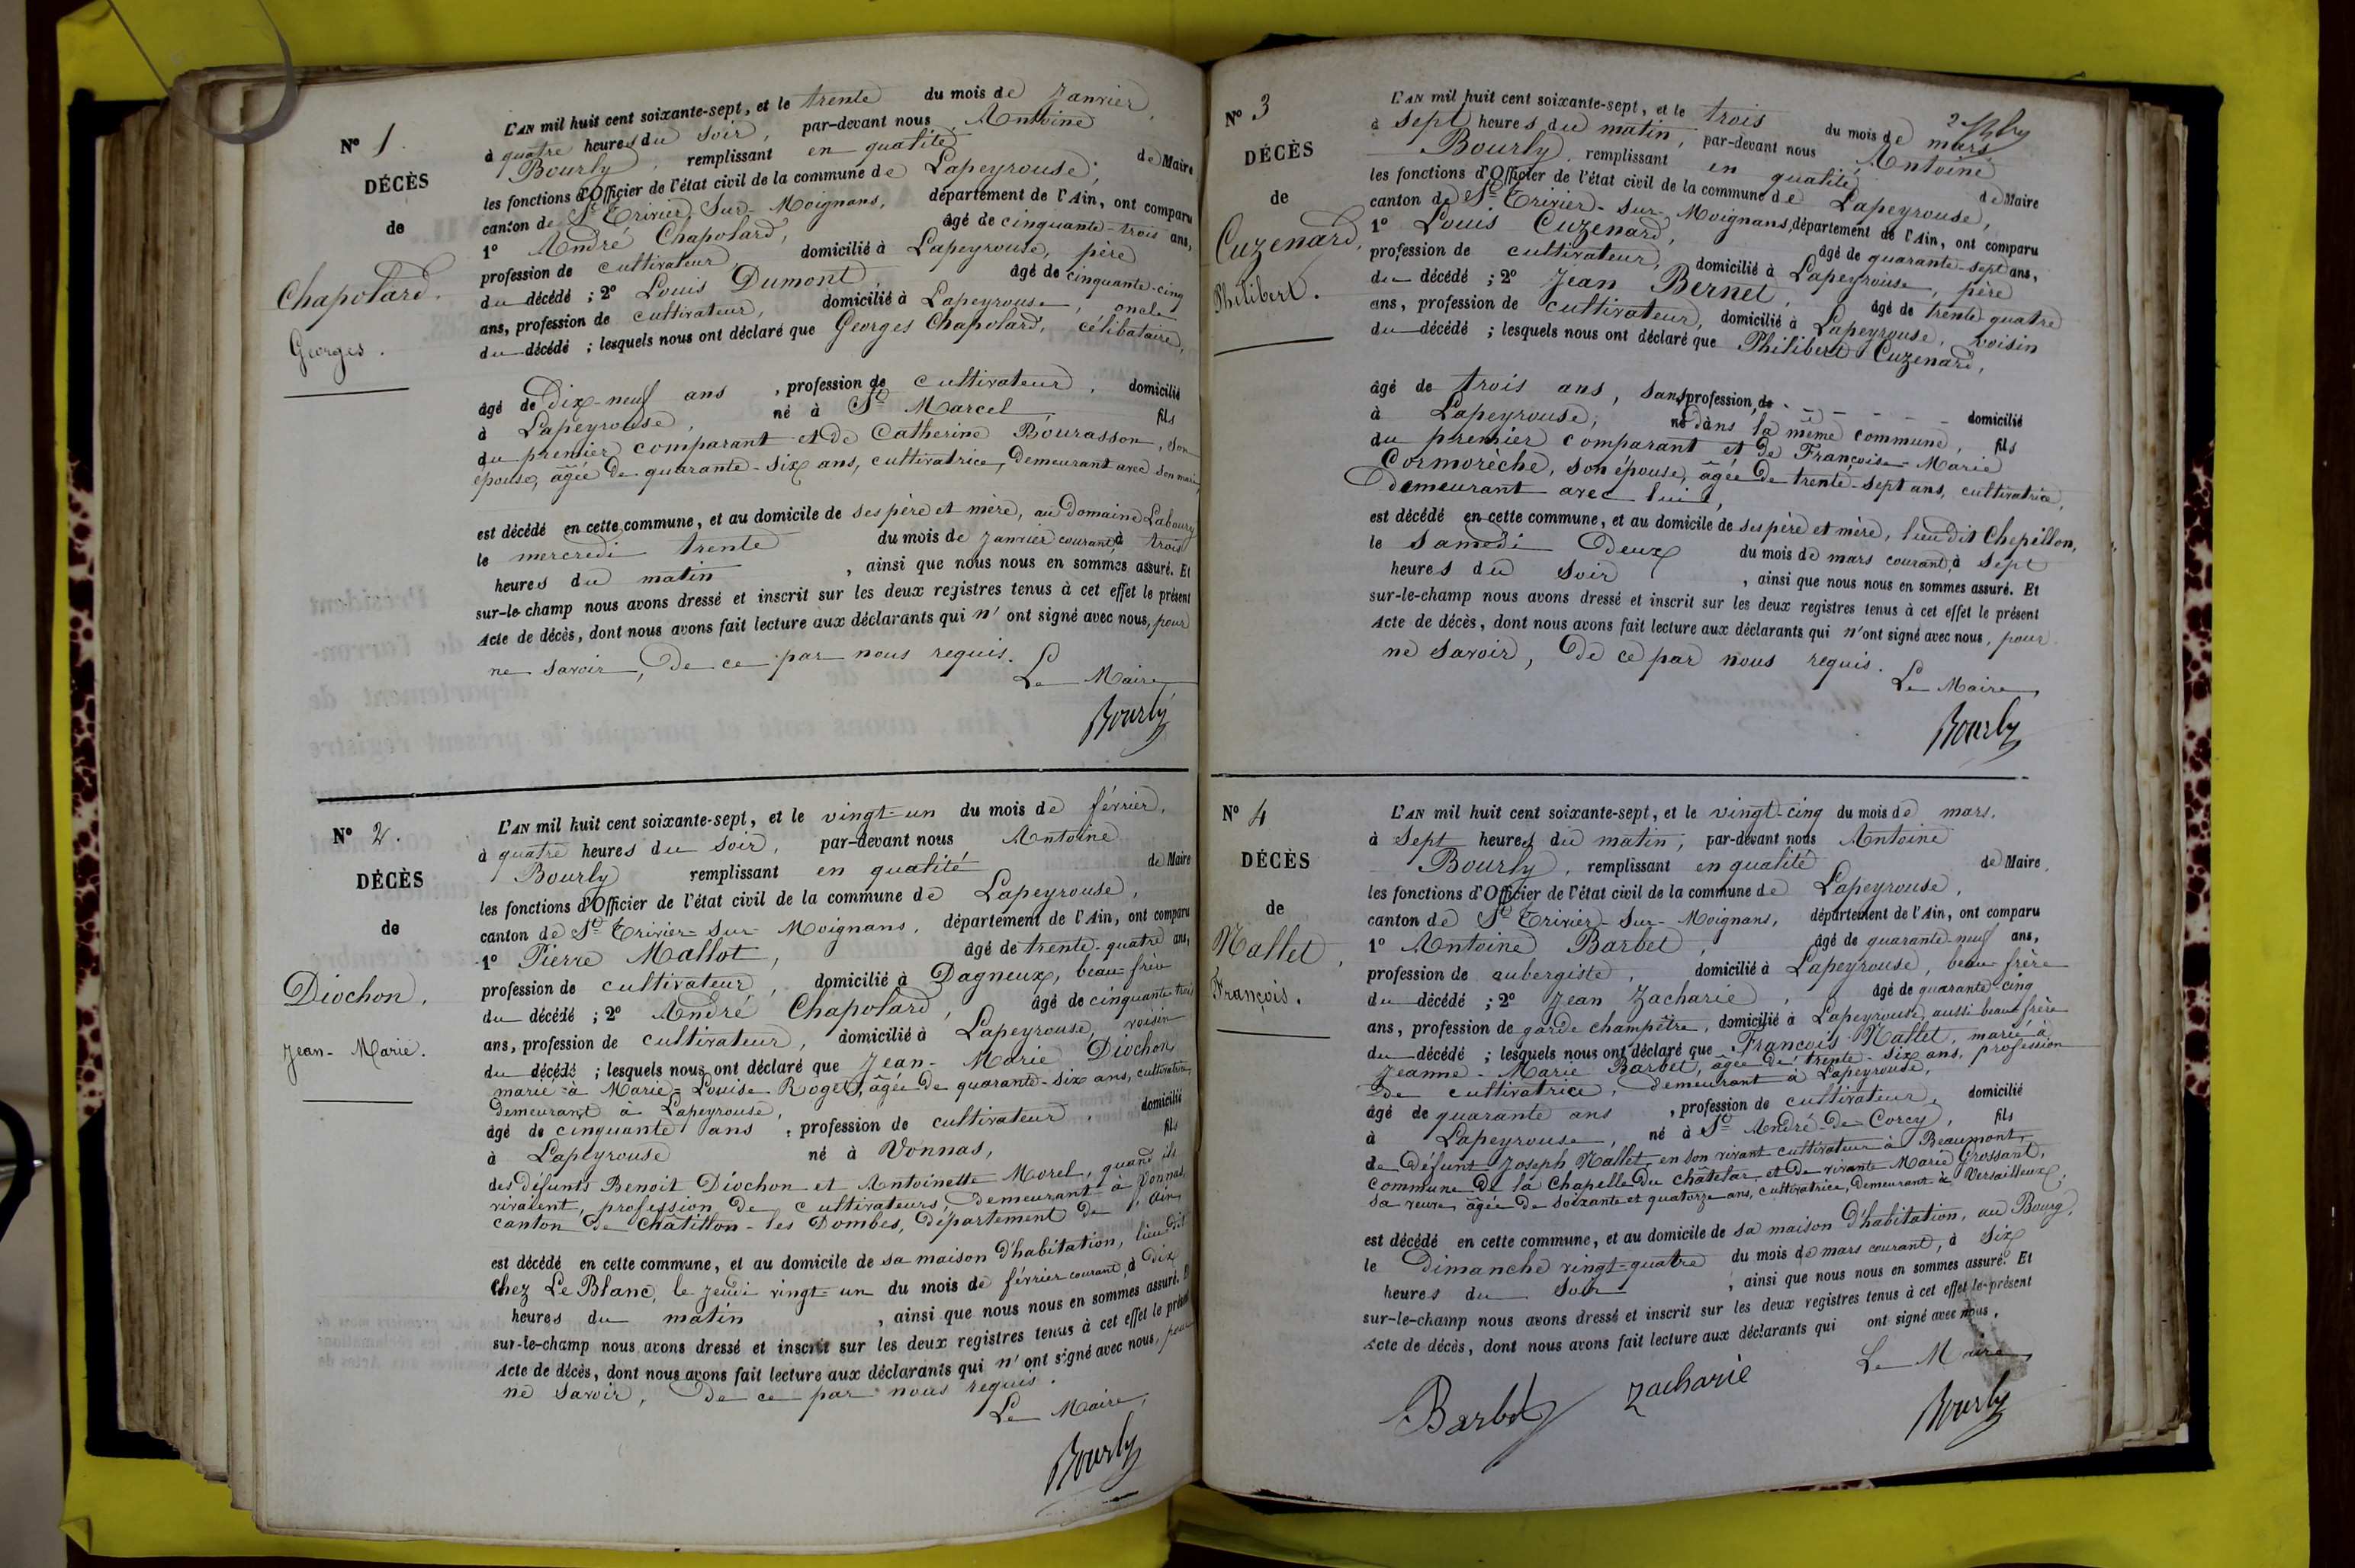 N° 1.
DÉCÈS
de
Chapolard.
Georges.
L'AN mil huit cent soixante-sept, et le trente du mois de Janvier,
à quatre heures du soir, par-devant nous Antoine
Bourly, remplissant en qualité de Maire
les fonctions d'Officier de l'état civil de la commune de Lapeyrouse,
canton de St Trivier-sur-Moignans, département de l'Ain, ont comparu
1° André Chapolard, âgé de cinquante-trois ans,
profession de cultivateur, domicilié à Lapeyrouse, père
du décédé ; 2° Louis Dumont, âgé de cinquante-cinq
ans, profession de cultivateur, domicilié à Lapeyrouse, oncle
du décédé ; lesquels nous ont déclaré que Georges Chapolard, célibataire,
âgé de Dix-neuf ans, profession de cultivateur, domicilié
à Lapeyrouse, né à St Marcel, fils
du premier comparant et de Catherine Bourasson, son
épouse, âgée de quarante-six ans, cultivatrice, demeurant avec son mari,
est décédé en cette commune, et au domicile de ses père et mère, au domaine Laboury
le mercredi trente du mois de Janvier courant, à trois
heures du matin, ainsi que nous nous en sommes assuré. Et
sur-le-champ nous avons dressé et inscrit sur les deux registres tenus à cet effet le présent
Acte de décès, dont nous avons fait lecture aux déclarants qui n'ont signé avec nous, pour
ne savoir, de ce par nous requis.
Le Maire
Bourly
N° 2.
DÉCÈS
de
Diochon,
Jean-Marie.
L'AN mil huit cent soixante-sept, et le vingt-un du mois de février,
à quatre heures du soir, par-devant nous Antoine
Bourly remplissant en qualité de Maire
les fonctions d'Officier de l'état civil de la commune de Lapeyrouse,
canton de St Trivier-sur-Moignans, département de l'Ain, ont comparu
1° Pierre Mallot, âgé de trente-quatre ans,
profession de cultivateur, domicilié à Dagneux, beau-frère
du décédé ; 2° André Chapolard, âgé de cinquante-trois
ans, profession de cultivateur, domicilié à Lapeyrouse, voisin
du décédé ; lesquels nous ont déclaré que Jean-Marie Diochon,
marié à Marie-Louise Roget, âgée de quarante-six ans, cultivatrice,
demeurant à Lapeyrouse,
âgé de cinquante ans, profession de cultivateur, domicilié
à Lapeyrouse né à Vonnas, fils
des défunts Benoit Diochon et Antoinette Morel, quand ils
vivaient, profession de cultivateurs, demeurant à Vonnas,
canton de Châtillon-les-Dombes, département de l'Ain,
est décédé en cette commune, et au domicile de sa maison d'habitation, lieu dit
Chez Le Blanc, le jeudi vingt-un du mois de février courant, à Dix
heures du matin, ainsi que nous nous en sommes assuré. Et
sur-le-champ nous avons dressé et inscrit sur les deux registres tenus à cet effet le présent
Acte de décès, dont nous avons fait lecture aux déclarants qui n'ont signé avec nous, pour
ne savoir, de ce par nous requis.
Le Maire,
Bourly
N° 3
DÉCÈS
de
Cuzenard,
Philibert.
L'AN mil huit cent soixante-sept, et le trois du mois de mars
à sept heures du matin, par-devant nous Antoine
Bourly, remplissant en qualité de Maire
les fonctions d'Officier de l'état civil de la commune de Lapeyrouse,
canton de St Trivier-sur-Moignans, département de l'Ain, ont comparu
1° Louis Cuzenard, âgé de quarante-sept ans,
profession de cultivateur, domicilié à Lapeyrouse, père
du décédé ; 2° Jean Bernet, âgé de trente quatre
ans, profession de cultivateur, domicilié à Lapeyrouse, voisin
du décédé ; lesquels nous ont déclaré que Philibert Cuzenard,
âgé de trois ans, sans profession, de - - - - - domicilié
à Lapeyrouse, né dans la même commune, fils
du premier comparant et de Françoise-Marie
Cormorèche, son épouse, âgée de trente-sept ans, cultivatrice,
demeurant avec lui,
est décédé en cette commune, et au domicile de ses père et mère, lieu dit Chepillon,
le samedi Deux du mois de mars courant, à sept
heures du soir, ainsi que nous nous en sommes assuré. Et
sur-le-champ nous avons dressé et inscrit sur les deux registres tenus à cet effet le présent
Acte de décès, dont nous avons fait lecture aux déclarants qui n'ont signé avec nous, pour
ne savoir, de ce par nous requis.
Le Maire,
Bourly
N° 4
DÉCÈS
de
Nallet,
François.
L'AN mil huit cent soixante-sept, et le vingt-cinq du mois de mars,
à sept heures du matin, par-devant nous Antoine
Bourly, remplissant en qualité de Maire,
les fonctions d'Officier de l'état civil de la commune de Lapeyrouse,
canton de St Trivier-sur-Moignans, département de l'Ain, ont comparu
1° Antoine Barbet, âgé de quarante-neuf ans,
profession de aubergiste, domicilié à Lapeyrouse, beau frère
du décédé ; 2° Jean Zacharie, âgé de quarante-cinq
ans, profession de garde champêtre, domicilié à Lapeyrouse, aussi beau frère
du décédé ; lesquels nous ont déclaré que François Nallet, marié à
Jeanne-Marie Barbet, âgée de trente-six ans, profession
de cultivatrice, demeurant à Lapeyrouse,
âgé de quarante ans, profession de cultivateur, domicilié
à Lapeyrouse, né à St André-de-Corcy, fils
de défunt Joseph Nallet, en son vivant cultivateur à Beaumont,
commune de la Chapelle du châtelar, et de vivante Marie Grossant,
sa veuve, âgée de soixante et quatorze ans, cultivatrice, demeurant à Versailleux,
est décédé en cette commune, et au domicile de sa maison d'habitation, au Bourg,
le Dimanche vingt-quatre du mois de mars courant, à six
heures du soir, ainsi que nous nous en sommes assuré. Et
sur-le-champ nous avons dressé et inscrit sur les deux registres tenus à cet effet le présent
Acte de décès, dont nous avons fait lecture aux déclarants qui ont signé avec nous.
Le Maire
Barbet Zacharie Bourly